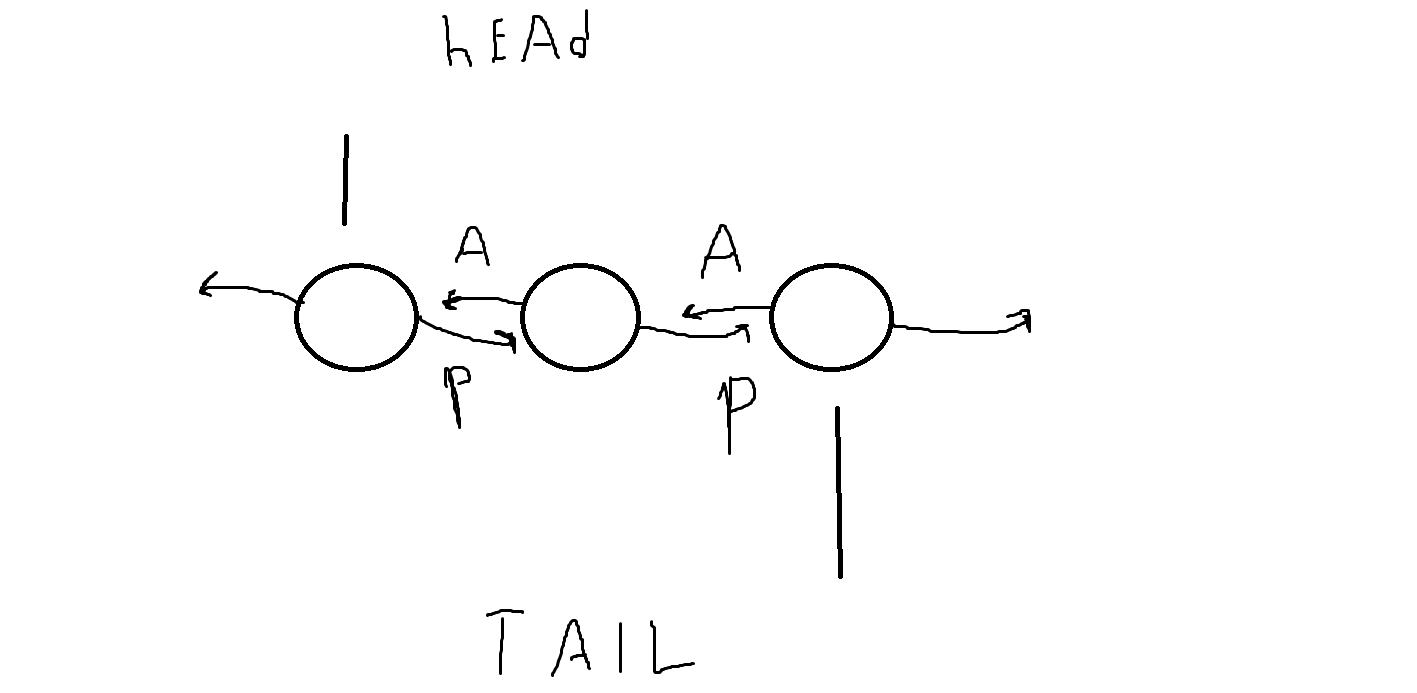 hEAd
A A
P P
TAIL